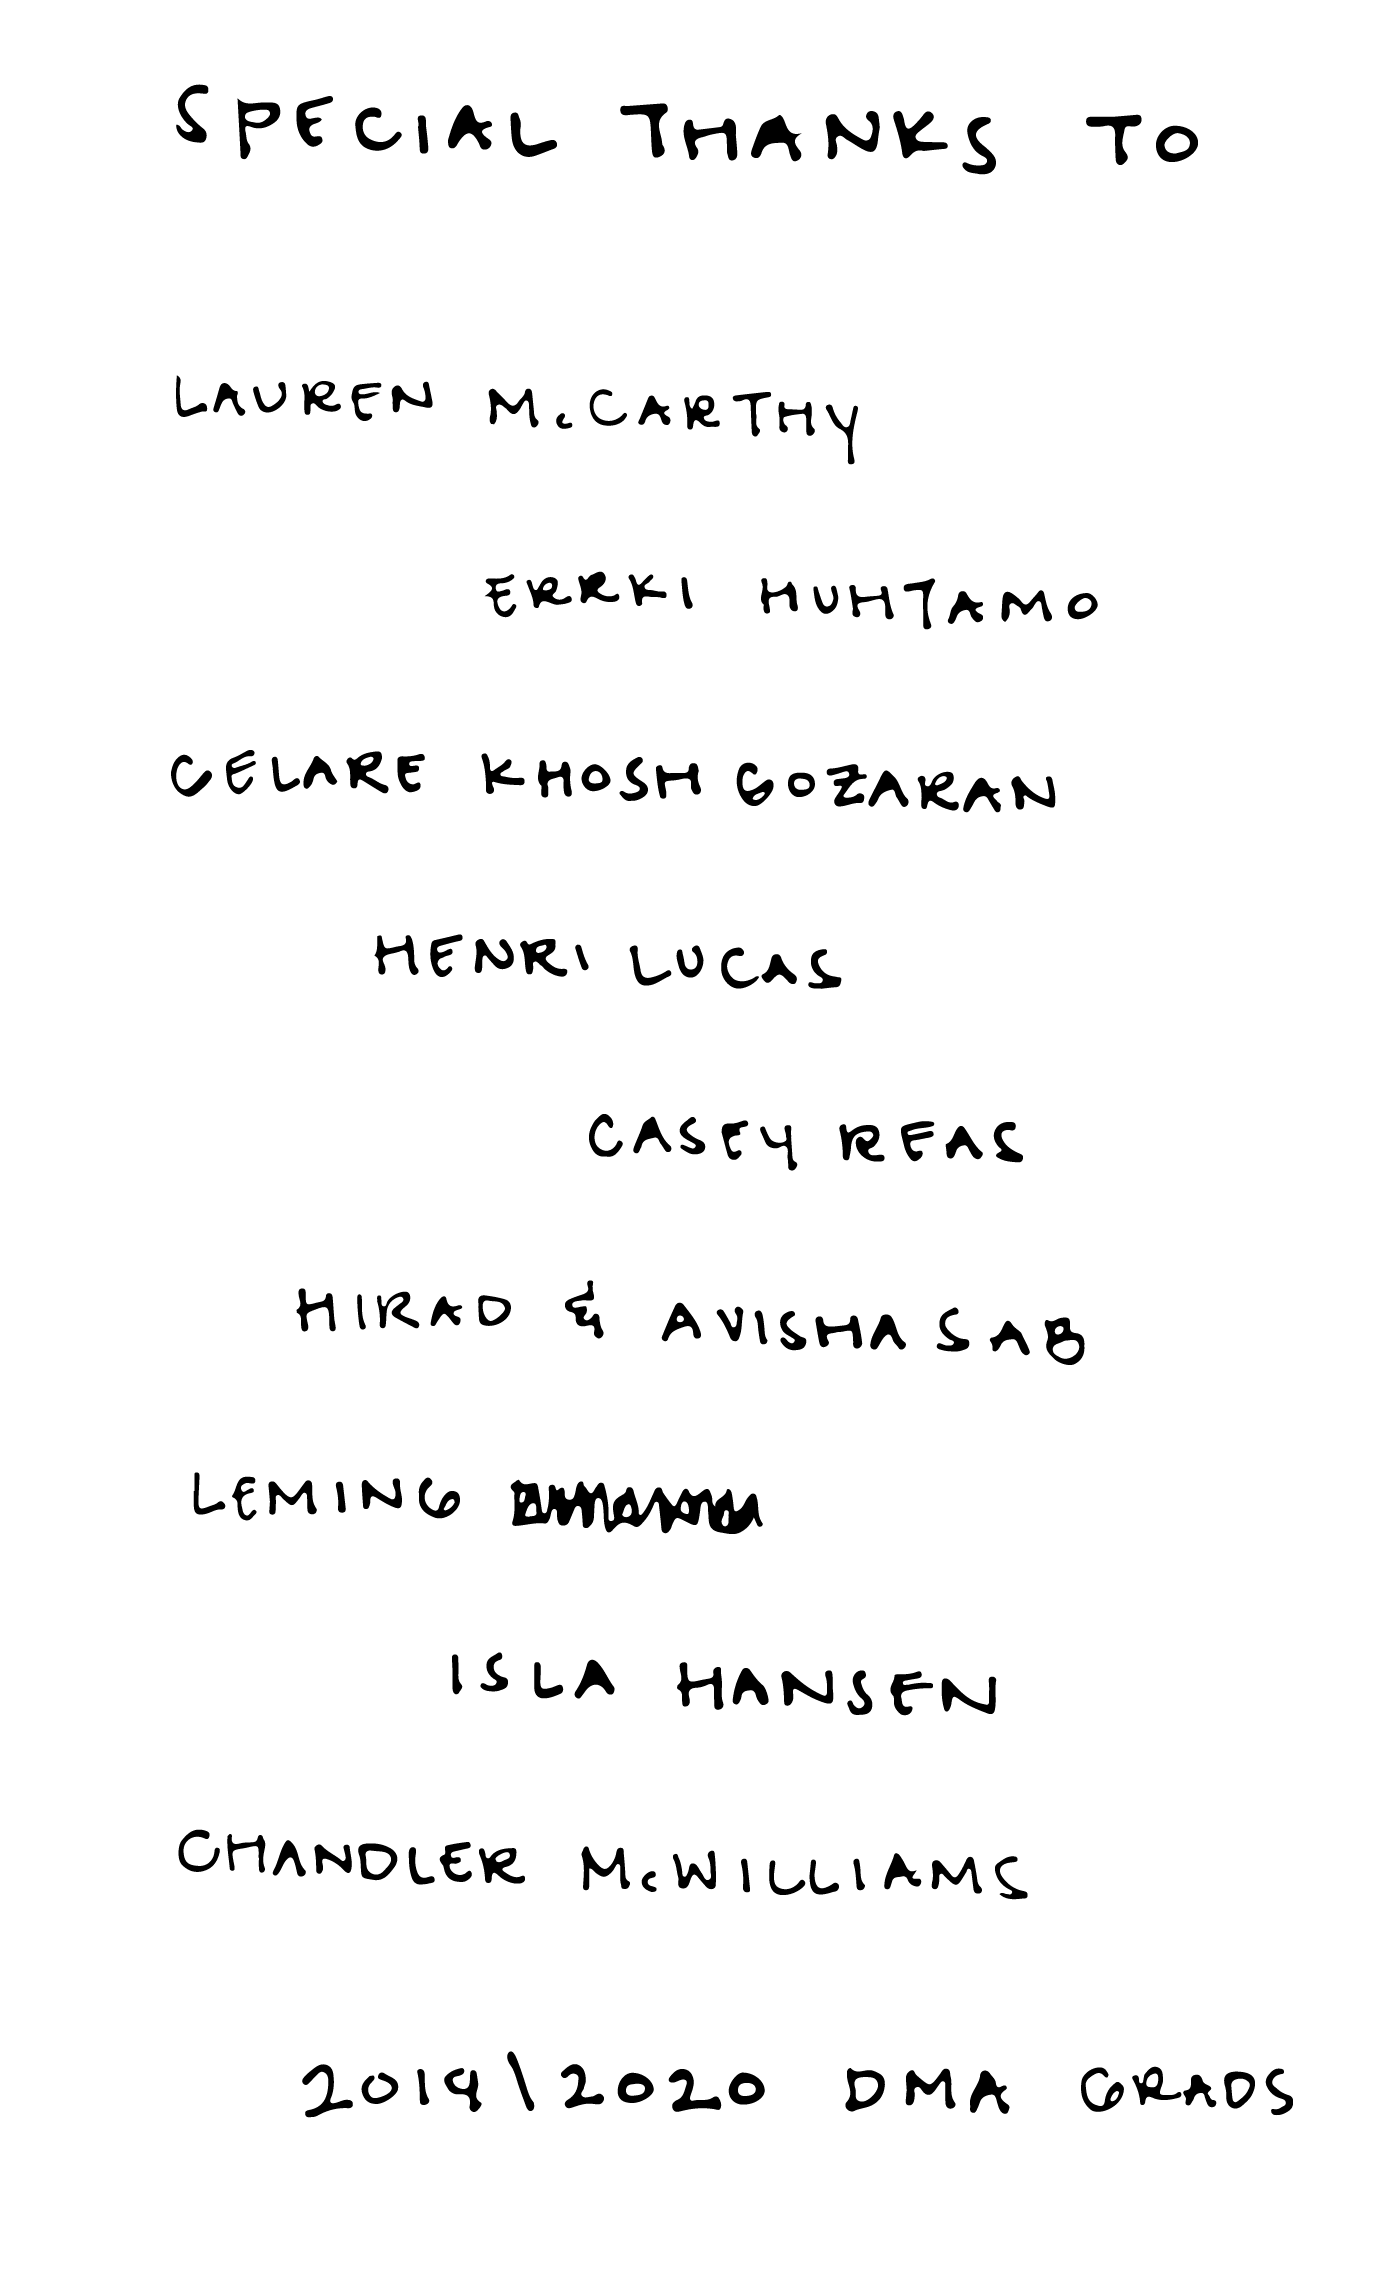 SPECIAL THANKS TO
LAUREN McCARTHY
ERRKI HUHTAMO
GELARE KHOSHGOZARAN
HENRI LUCAS
CASEY REAS
HIRAD & AVISHA SAB
LEMING
ISLA HANSEN
CHANDLER McWILLIAMS
2019\2020 DMA GRADS